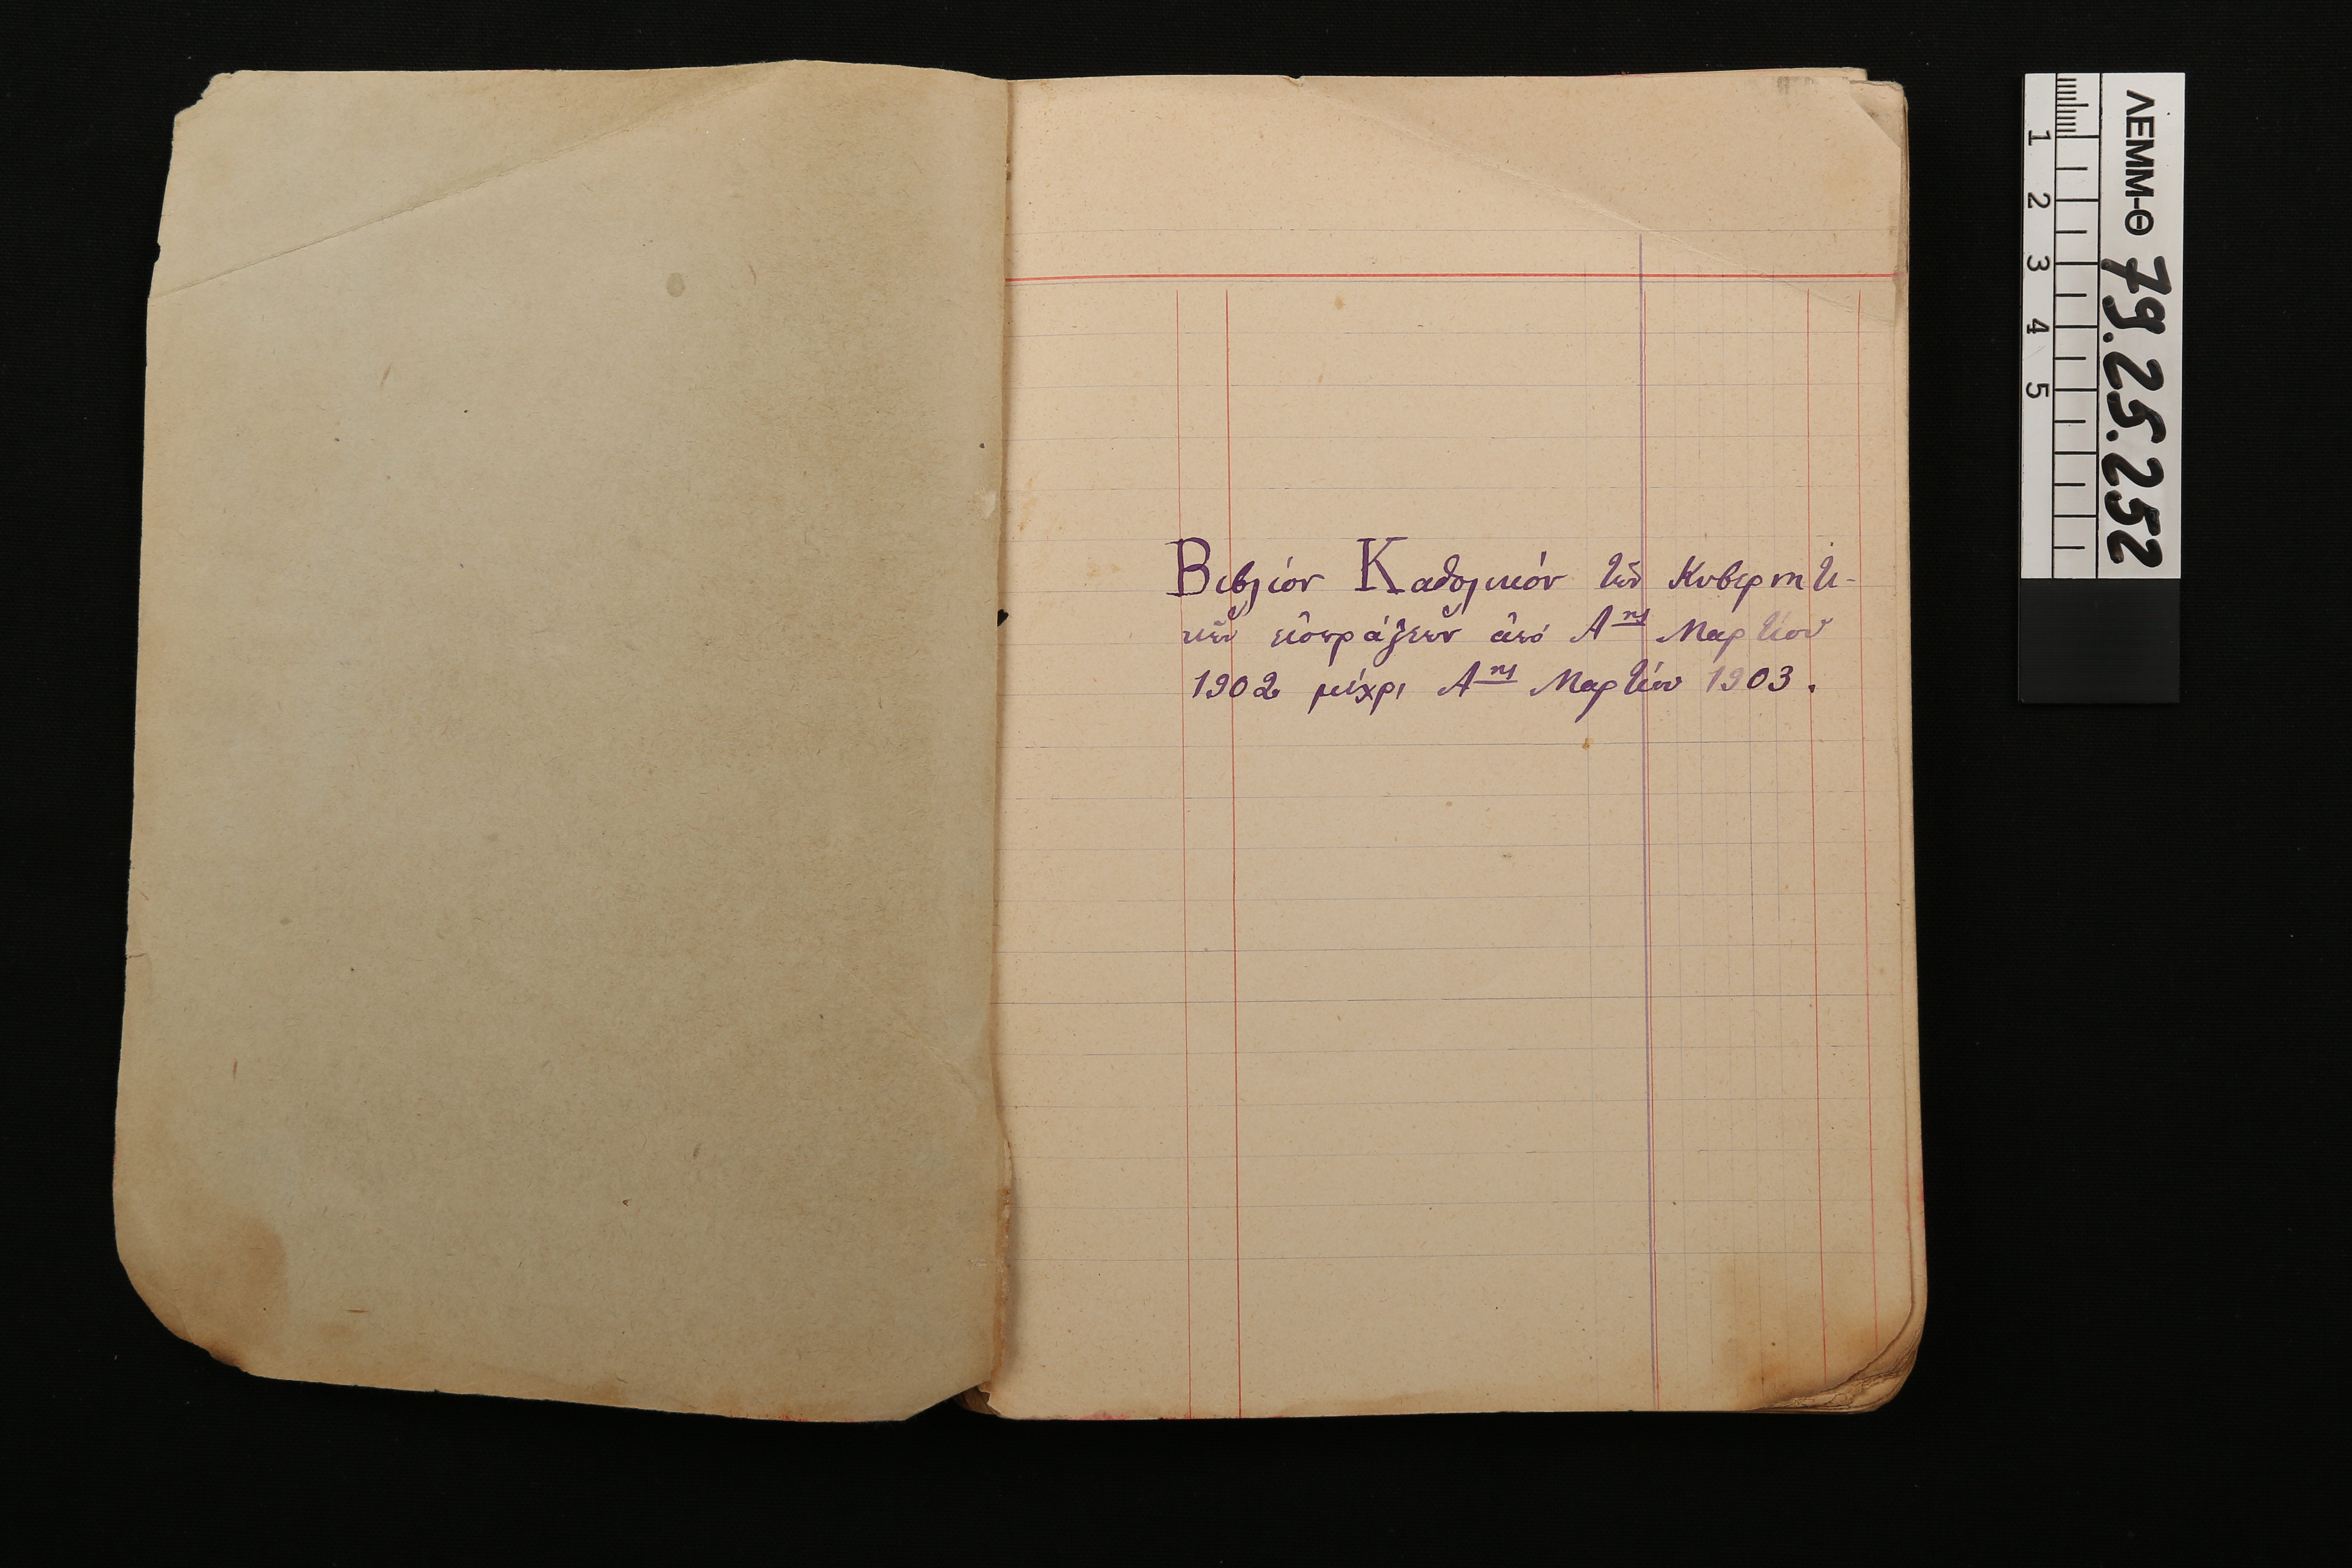 Βιβλίον Καθολικόν τῶν Κυβερνητι-
κῶν εἰσπράξεων ἀπό Αης Μαρτίου
1902 μέχρι Αης Μαρτίου 1903.
ΛΕΜΜ-Θ 79.25.252
1 2 3 4 5